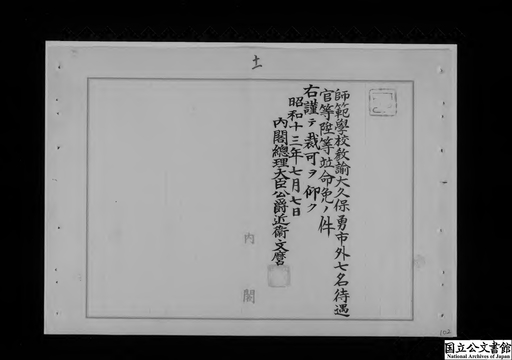 土
師範學校教諭大久保勇市外七名待遇
官等陞等竝命免ノ件
右謹テ裁可ヲ仰ク
昭和十三年七月七日
內閣總理大臣公爵近衞文麿
內閣
国立公文書館
National Archives of Japan